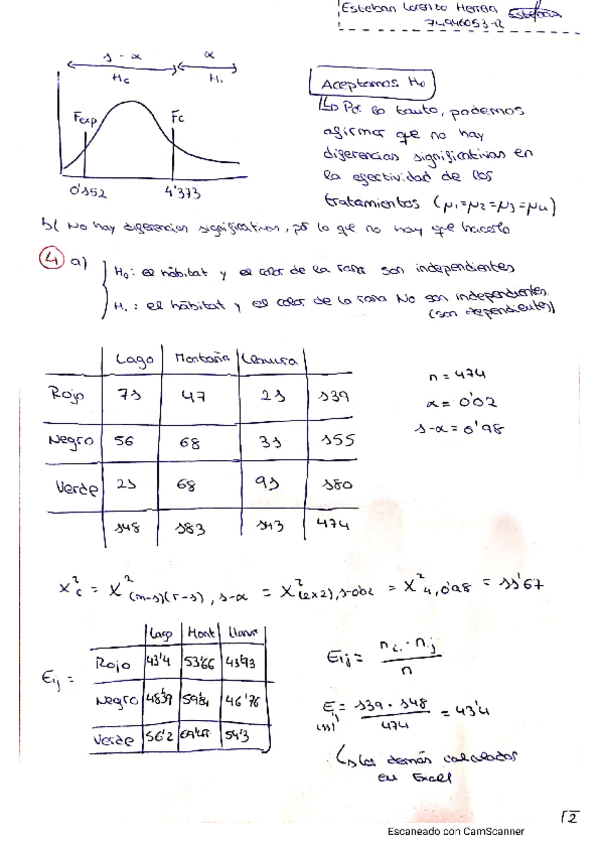 Esteban Lorenzo Herrera
1 - α α
H₀ H₁
Fexp Fc
0'152 4'373
Aceptamos H₀
↳ Por lo tanto, podemos
afirmar que no hay
diferencias significativas en
la efectividad de los
tratamientos (μ₁=μ₂=μ₃=μ₄)
b) No hay diferencias significativas, por lo que no hay que hacerlo
4 a) H₀: el hábitat y el color de la rana son independientes
H₁: el hábitat y el color de la rana No son independientes
(son dependientes)
Lago Montaña Llanura
Rojo 71 47 21 139
Negro 56 68 31 155
Verde 21 68 91 180
148 183 143 474
n = 474
α = 0'02
1-α = 0'98
X²c = X²(m-1)(r-1), 1-α = X²(2x2), 1-0'02 = X²4, 0'98 = 11'67
Eij =
Lago Mont Llanur
Rojo 43'4 53'66 41'93
Negro 48'39 59'84 46'76
Verde 56'2 54'3
Eij = ni. · n.j / n
E(11) = 139 · 148 / 474 = 43'4
↳ Los demás calculados
en Excel
2
Escaneado con CamScanner